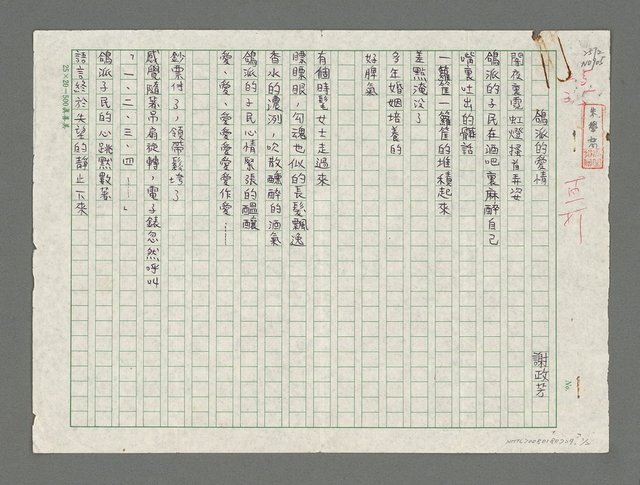 鴿派的愛情
謝政芳
闇夜裏霓虹燈搔首弄姿
鴿派的子民在酒吧裏麻醉自己
嘴裏吐出的髒話
一籮筐一籮筐的堆積起來
差點淹沒了
多年婚姻培養的
好脾氣
有個時髦女士走過來
瞟瞟眼，勾魂也似的長髮飄逸
香水的濃洌，吹散醺醉的酒氣
鴿派的子民心情緊張的醞釀
愛、愛、愛愛愛愛愛作愛……
鈔票付了，領帶鬆垮了
感覺隨著吊扇旋轉，電子錶忽然呼叫
「一、二、三、四……」
鴿派子民的心跳默數著
語言終於失望的靜止下來
25×20=500
No.